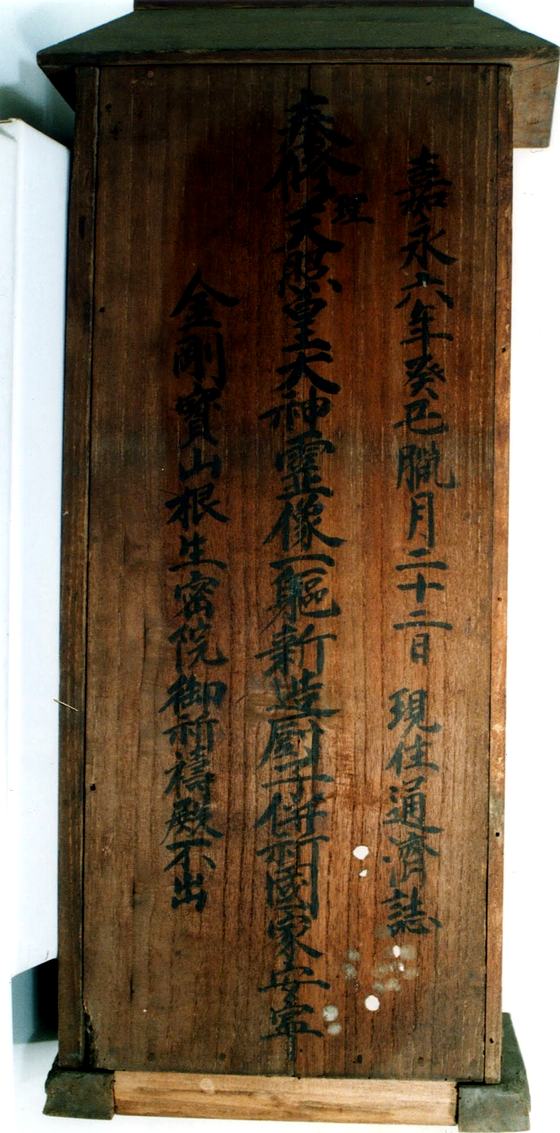 嘉永六年癸巳臘月二十二日 現住通濟誌
奉修理天照皇大神靈像一軀新造厨子併祈國家安寧
金剛寶山根生密院御祈禱殿不出